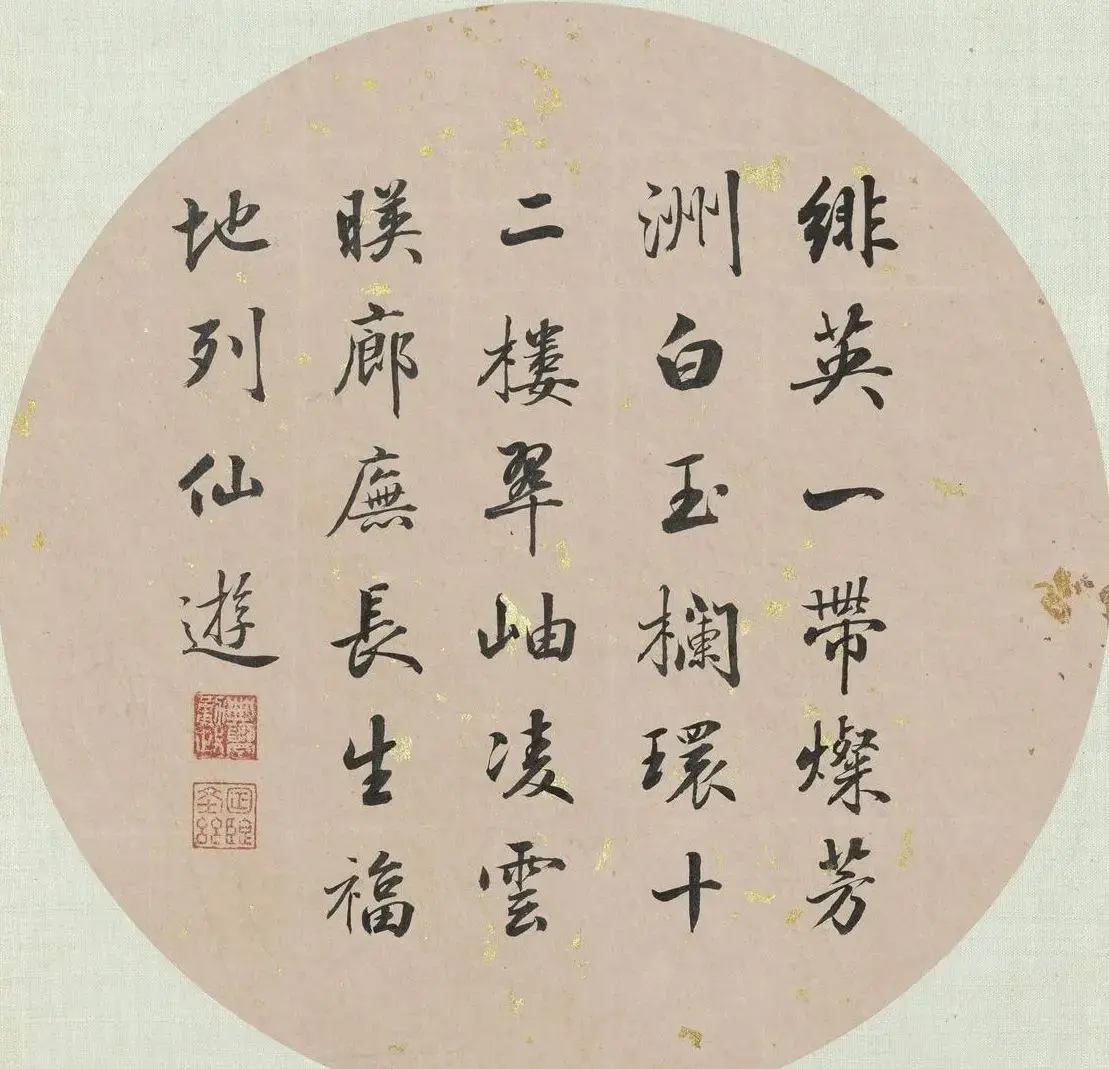 緋英一帶燦芳
洲白玉欄環十
二樓翠岫凌雲
暎廊廡長生福
地列仙遊